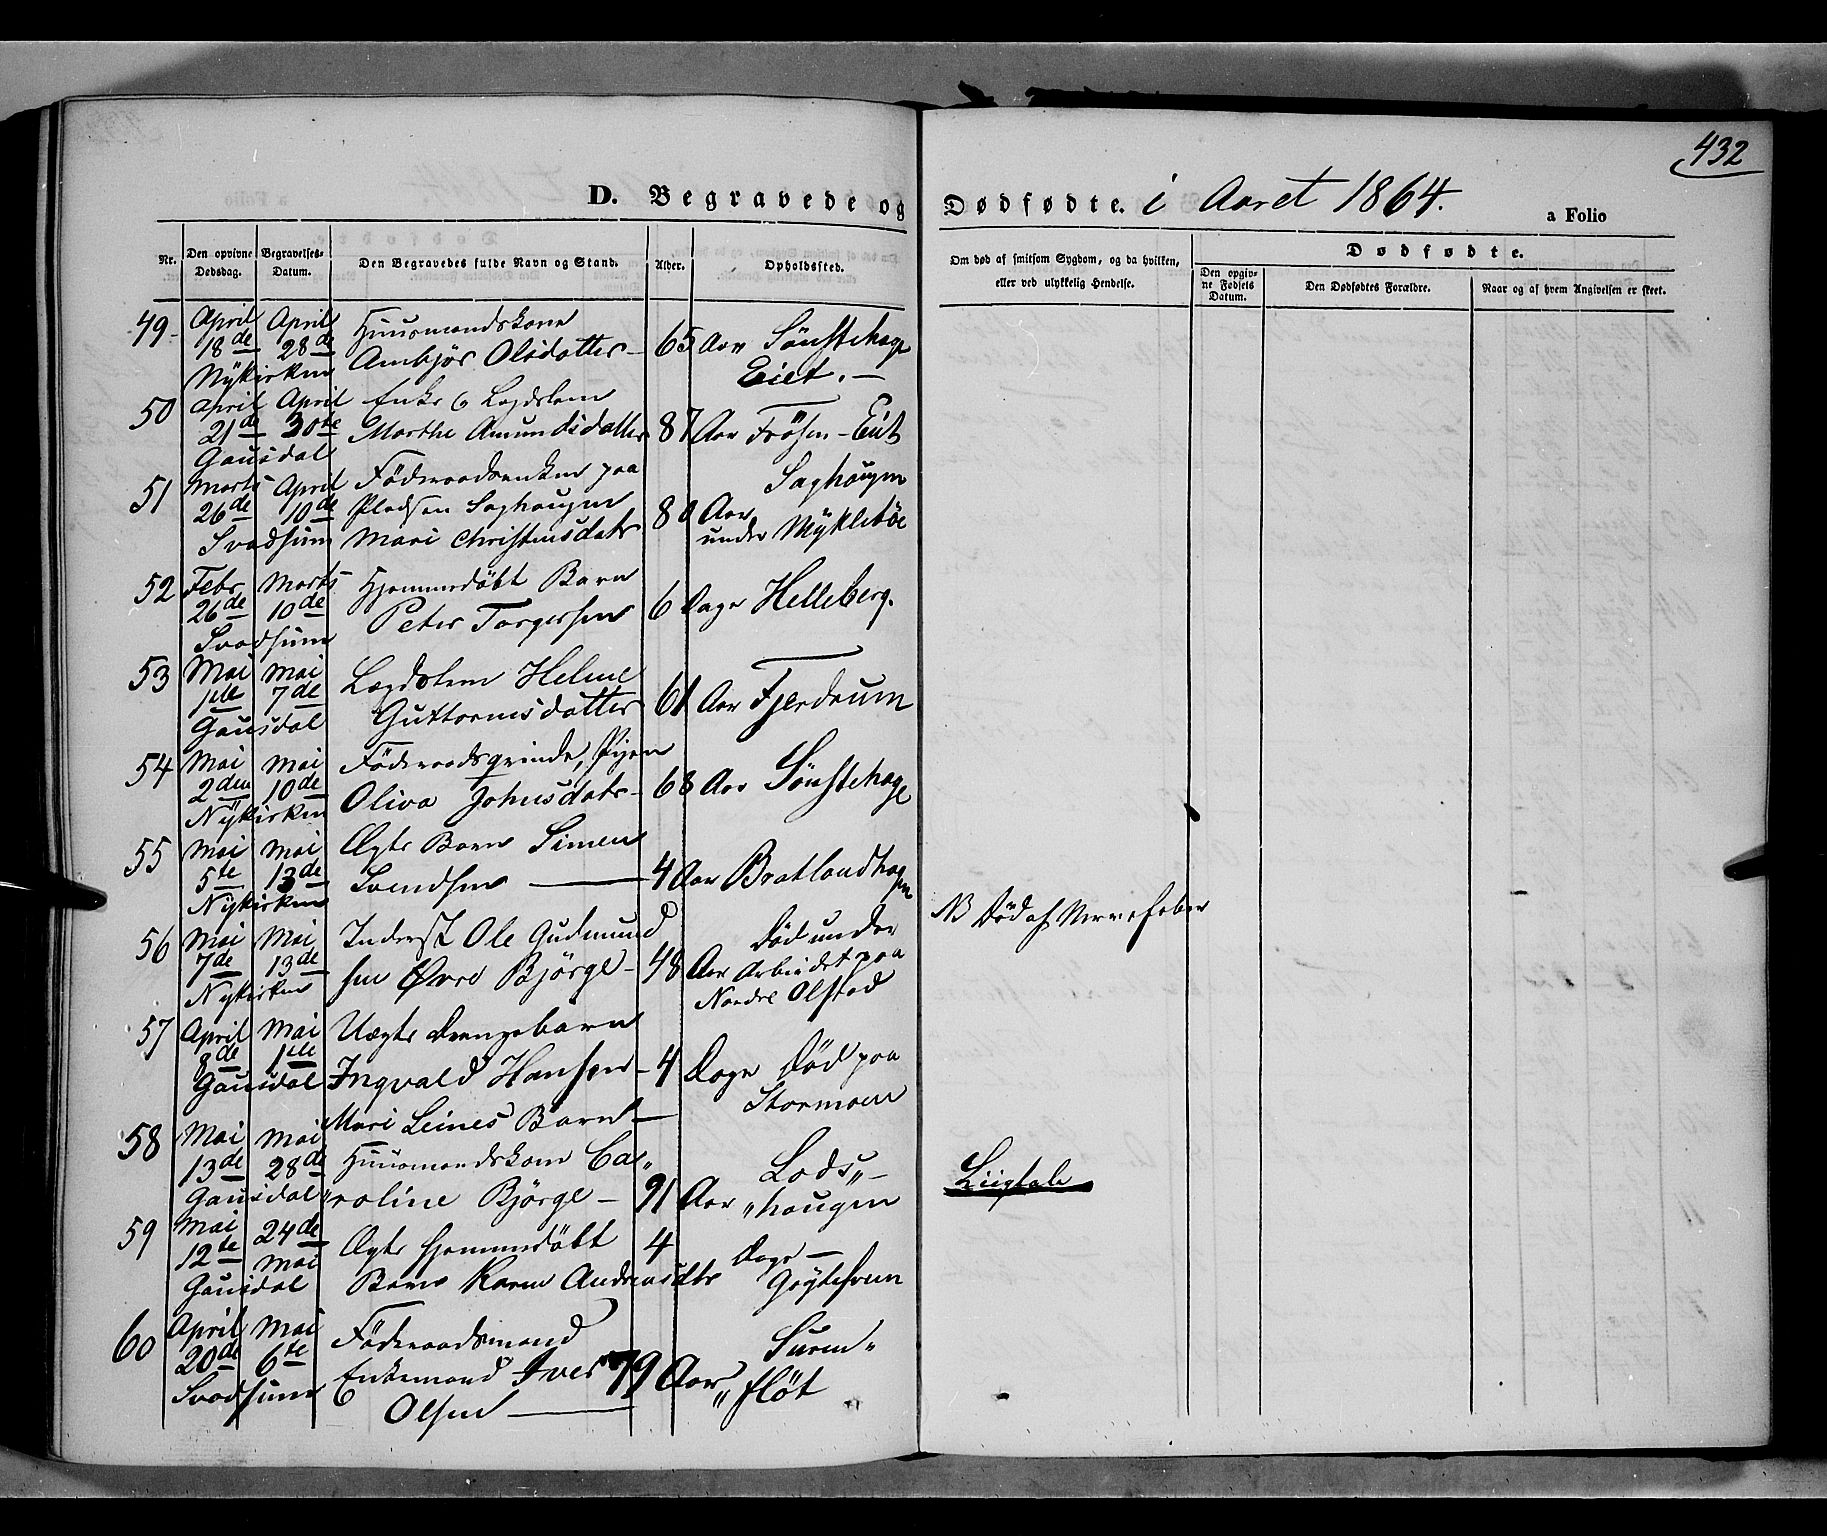 432
D. Begravede og Dødfødte. i Aaret 1864.
a Folio
Nr.
Den opgivne Dødsdag.
Begravelses-Datum.
Den Begravedes fulde Navn og Stand.
Alder.
Opholdssted.
Om død af smitsom Sygdom, og da hvilken, eller ved ulykkelig Hendelse.
Dødfødte.
Den opgivne Fødsels Datum.
Den Dødfødtes Forældre.
Naar og af hvem Angivelsen er skeet.
49 April April Huusmandskone
18de 28de Ambjør Olsdatter 65 Aar Sønstehage
Nykirken Eiet.
50 April April Enke & Lægdslem
21de 30te Marthe Amundsdatter 87 Aar Frøsen-Eiet
Gausdal
51 Marts April Föderaadsenken paa Saghaugen
26de 10de Pladsen Saghaugen 80 Aar
Svadsum Mari Christensdatr under Myklebøe
52 Febr Marts Hjemmedöbt Barn
26de 10de Peter Torgersen 6 Dage Helleberg.
Svadsum
53 Mai Mai Lægdslem Helene
1ste 7de Guttormsdatter 61 Aar Fjerdrum
Gausdal
54 Mai Mai Föderaadsqvinde, Pigen
2den 10de Oliva Johnsdatr 68 Aar Sønstehage
Nykirken
55 Mai Mai Ægte Barn Simen
5te 13de Svendsen 4 Aar Bratlandhagen
Nykirken
56 Mai Mai Inderst Ole Gudmund Död under NB Död af Nervefeber
7de 13de sen Øvre Bjørge 48 Aar Arbeidet paa
Nykirken Nordre Olstad
57 April Mai Uægte Drengebarn
8de 1ste Ingvald Hansen 4 Dage Död paa
Gausdal Stormoen
Mari Leines Barn
58 Mai Mai
13de 28de Huusmandskone Ca„ Lods„
Gausdal „roline Bjørge 91 Aar „haugen Liigtale
59 Mai 24de
12te Mai Ægte hjemmedöbt 4 Dage
Gausdal Barn Karen Andreasdtr
60 April Mai Föderaadsmand
20de 6te Enkemand Iver 79 Aar Suren„
Svadsum Olsen „fløt